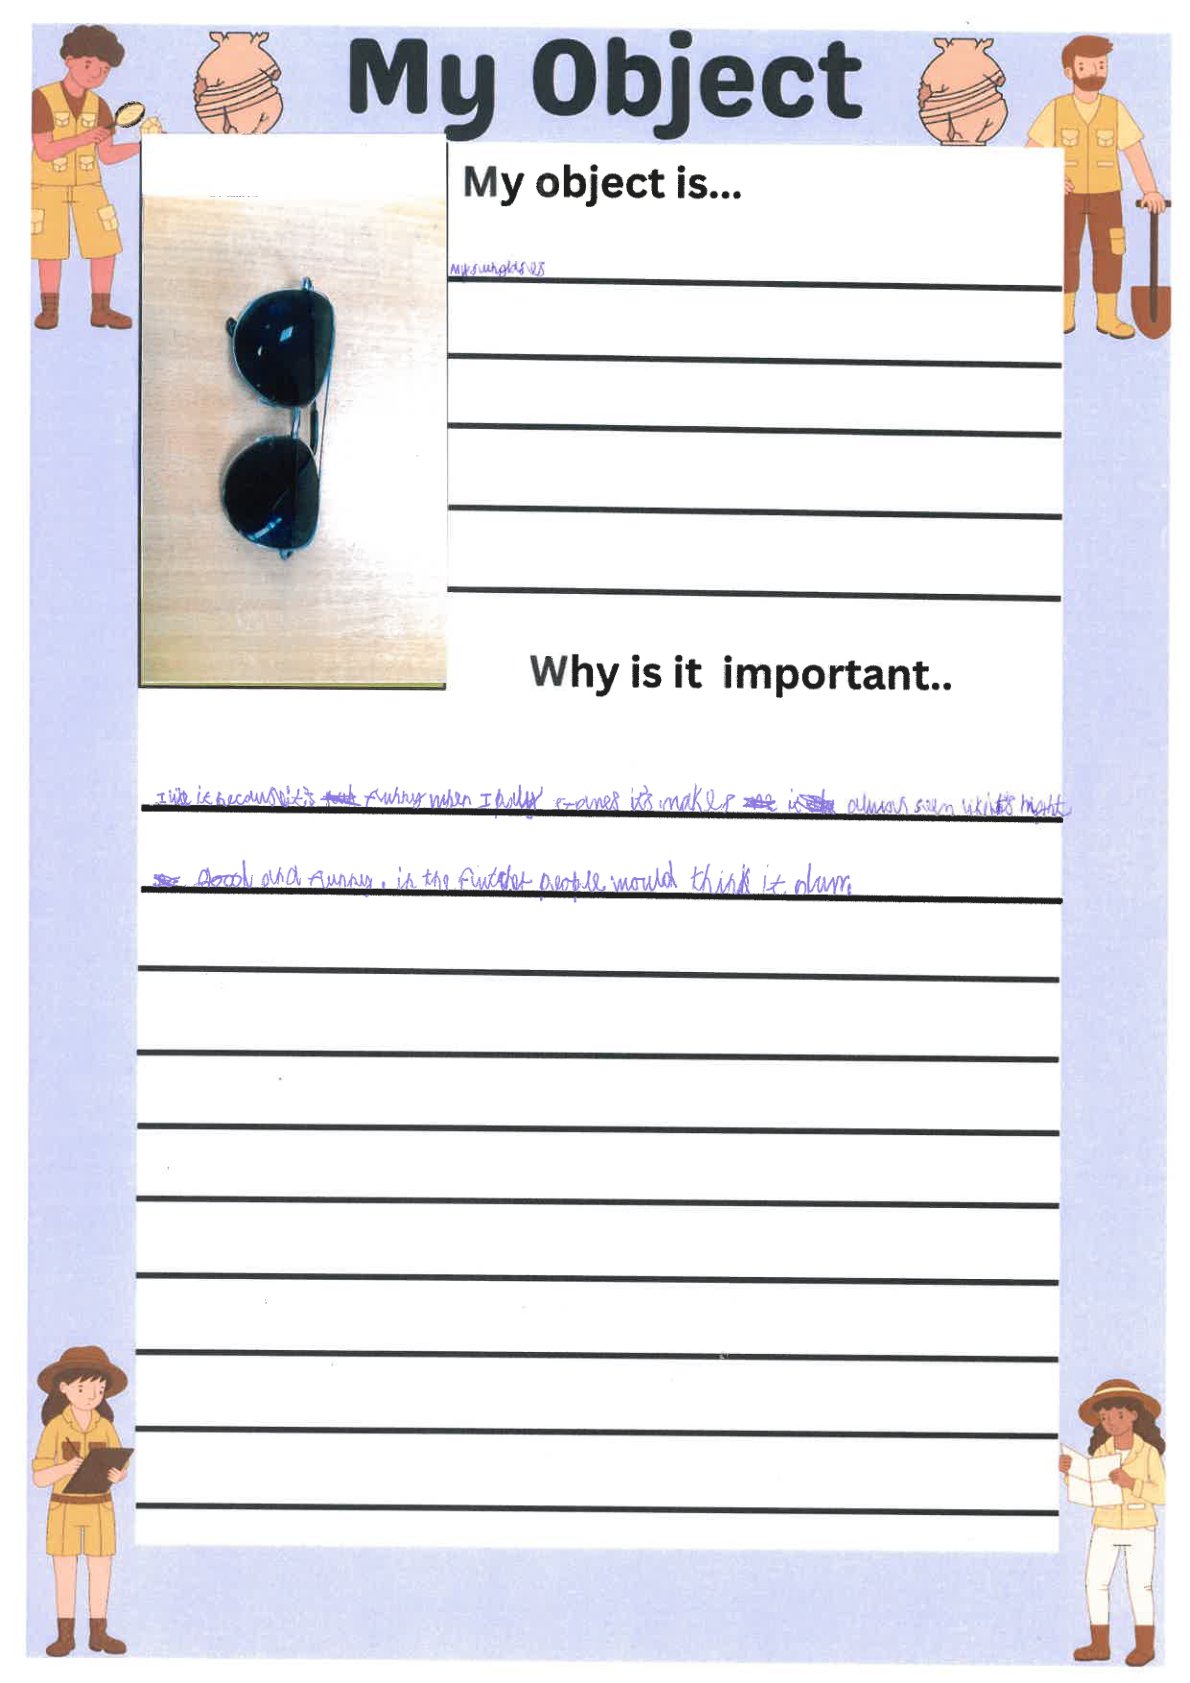 My Object
My object is...
My sunglasses
Why is it important..
I like it because it's funny when I play games it's makes it almost seen like it's night
Good and funny. in the futcher people would think it dum.